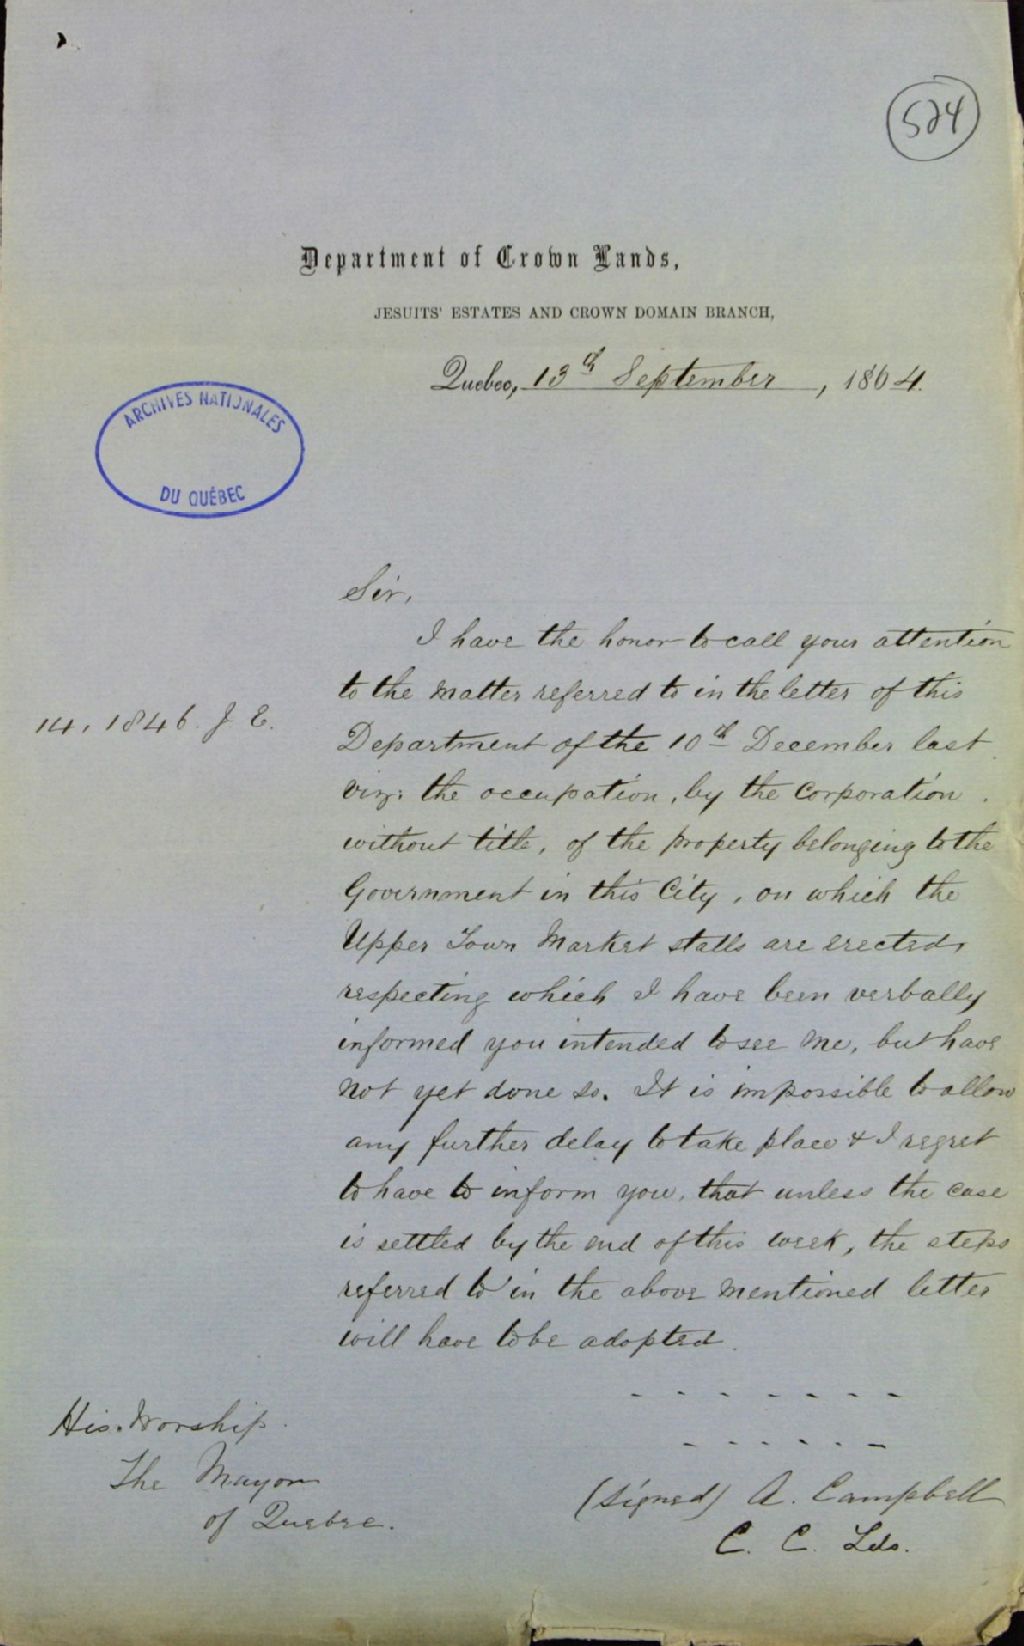 524
Department of Crown Lands,
JESUITS' ESTATES AND CROWN DOMAIN BRANCH,
Quebec, 13th September, 1864.
ARCHIVES NATIONALES
DU QUÉBEC
Sir,
I have the honor to call your attention
to the matter referred to in the letter of this
14, 1846 J. E.
Department of the 10th December last
viz: the occupation, by the Corporation
without title, of the property belonging to the
Government in this City, on which the
Upper Town Market stalls are erected,
respecting which I have been verbally
informed you intended to see me, but have
not yet done so. It is impossible to allow
any further delay to take place & I regret
to have to inform you, that unless the case
is settled by the end of this week, the steps
referred to in the above mentioned letter
will have to be adopted.
- - - - - - -
- - - - - -
His Worship
The Mayor
of Quebec.
(signed) A. Campbell
C. C. Lds.